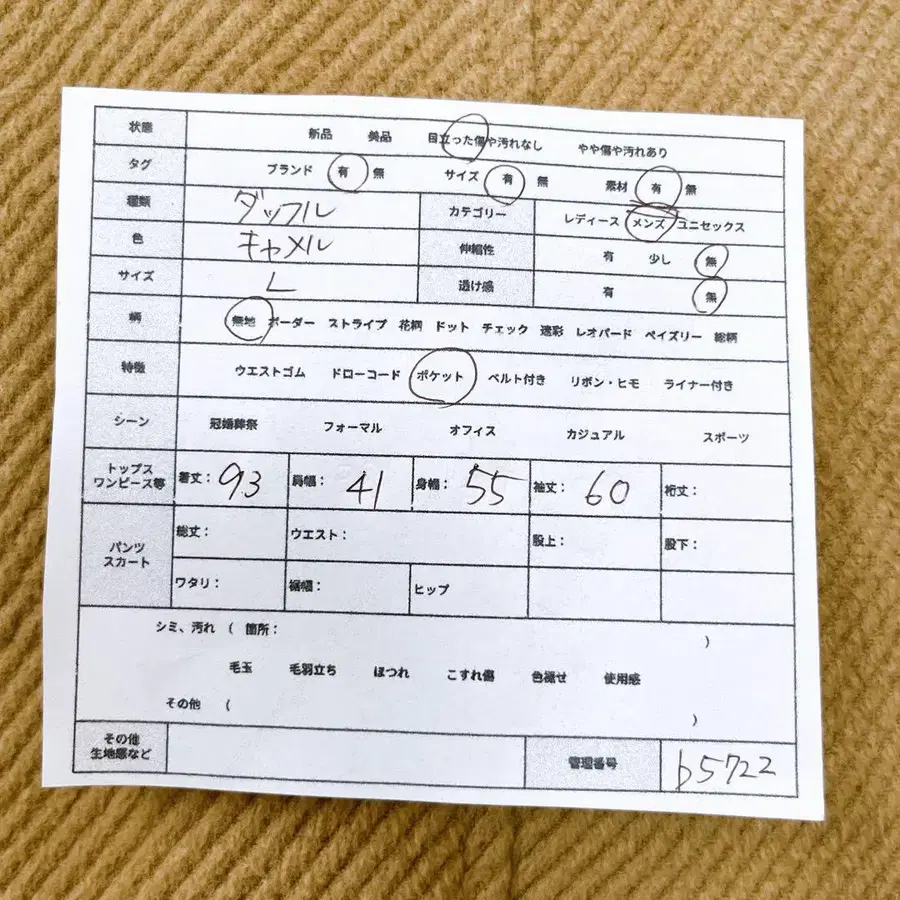 状態 新品 美品 目立った傷や汚れなし やや傷や汚れあり
タグ ブランド 有 無 サイズ 有 無 素材 有 無
種類 ダッフル カテゴリー レディース メンズ ユニセックス
色 キャメル 伸縮性 有 少し 無
サイズ L 透け感 有 無
柄 無地 ボーダー ストライプ 花柄 ドット チェック 迷彩 レオパード ペイズリー 総柄
特徴 ウエストゴム ドローコード ポケット ベルト付き リボン・ヒモ ライナー付き
シーン 冠婚葬祭 フォーマル オフィス カジュアル スポーツ
トップス
ワンピース等 着丈: 93 肩幅: 41 身幅: 55 袖丈: 60 裄丈:
パンツ
スカート 総丈: ウエスト: 股上: 股下:
ワタリ: 裾幅: ヒップ
シミ、汚れ ( 箇所: )
毛玉 毛羽立ち ほつれ こすれ傷 色褪せ 使用感
その他 ( )
その他
生地感など 管理番号 b5722